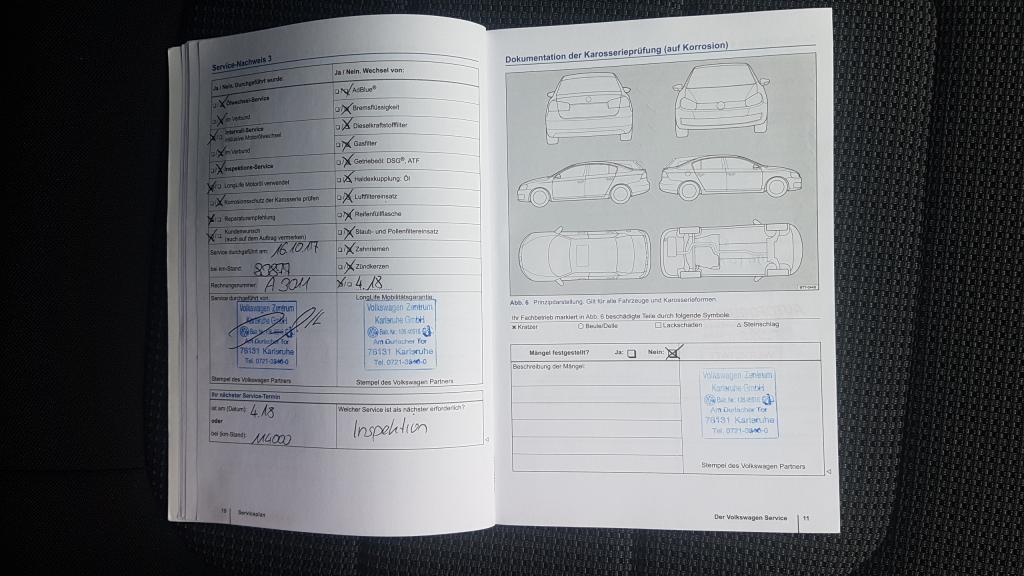 Service-Nachweis 3
Ja / Nein. Durchgeführt wurde:
Ölwechsel-Service
im Verbund
Intervall-Service
inklusive Motorölwechsel
im Verbund
Inspektions-Service
LongLife Motoröl verwendet
Korrosionsschutz der Karosserie prüfen
Reparaturempfehlung
Kundenwunsch
(auch auf dem Auftrag vermerken)
Service durchgeführt am: 16.10.17
bei km-Stand:
Rechnungsnummer: A 3011
Ja / Nein. Wechsel von:
AdBlue®
Bremsflüssigkeit
Dieselkraftstofffilter
Gasfilter
Getriebeöl: DSG®, ATF
Haldexkupplung: Öl
Luftfiltereinsatz
Reifenfüllflasche
Staub- und Pollenfiltereinsatz
Zahnriemen
Zündkerzen
4.18
Service durchgeführt von:
Volkswagen Zentrum
Karlsruhe GmbH
Am Durlacher Tor
76131 Karlsruhe
Tel. 0721-3840-0
Stempel des Volkswagen Partners
LongLife Mobilitätsgarantie:
Volkswagen Zentrum
Karlsruhe GmbH
Am Durlacher Tor
76131 Karlsruhe
Tel. 0721-3840-0
Stempel des Volkswagen Partners
Ihr nächster Service-Termin
ist am (Datum): 4.18
oder
bei (km-Stand): 114000
Welcher Service ist als nächster erforderlich?
Inspektion
10 Serviceplan
Dokumentation der Karosserieprüfung (auf Korrosion)
Abb. 6 Prinzipdarstellung. Gilt für alle Fahrzeuge und Karosserieformen.
Ihr Fachbetrieb markiert in Abb. 6 beschädigte Teile durch folgende Symbole:
Kratzer Beule/Delle Lackschaden Steinschlag
Mängel festgestellt? Ja: Nein:
Beschreibung der Mängel:
Volkswagen Zentrum
Karlsruhe GmbH
Am Durlacher Tor
76131 Karlsruhe
Tel. 0721-3840-0
Stempel des Volkswagen Partners
Der Volkswagen Service 11